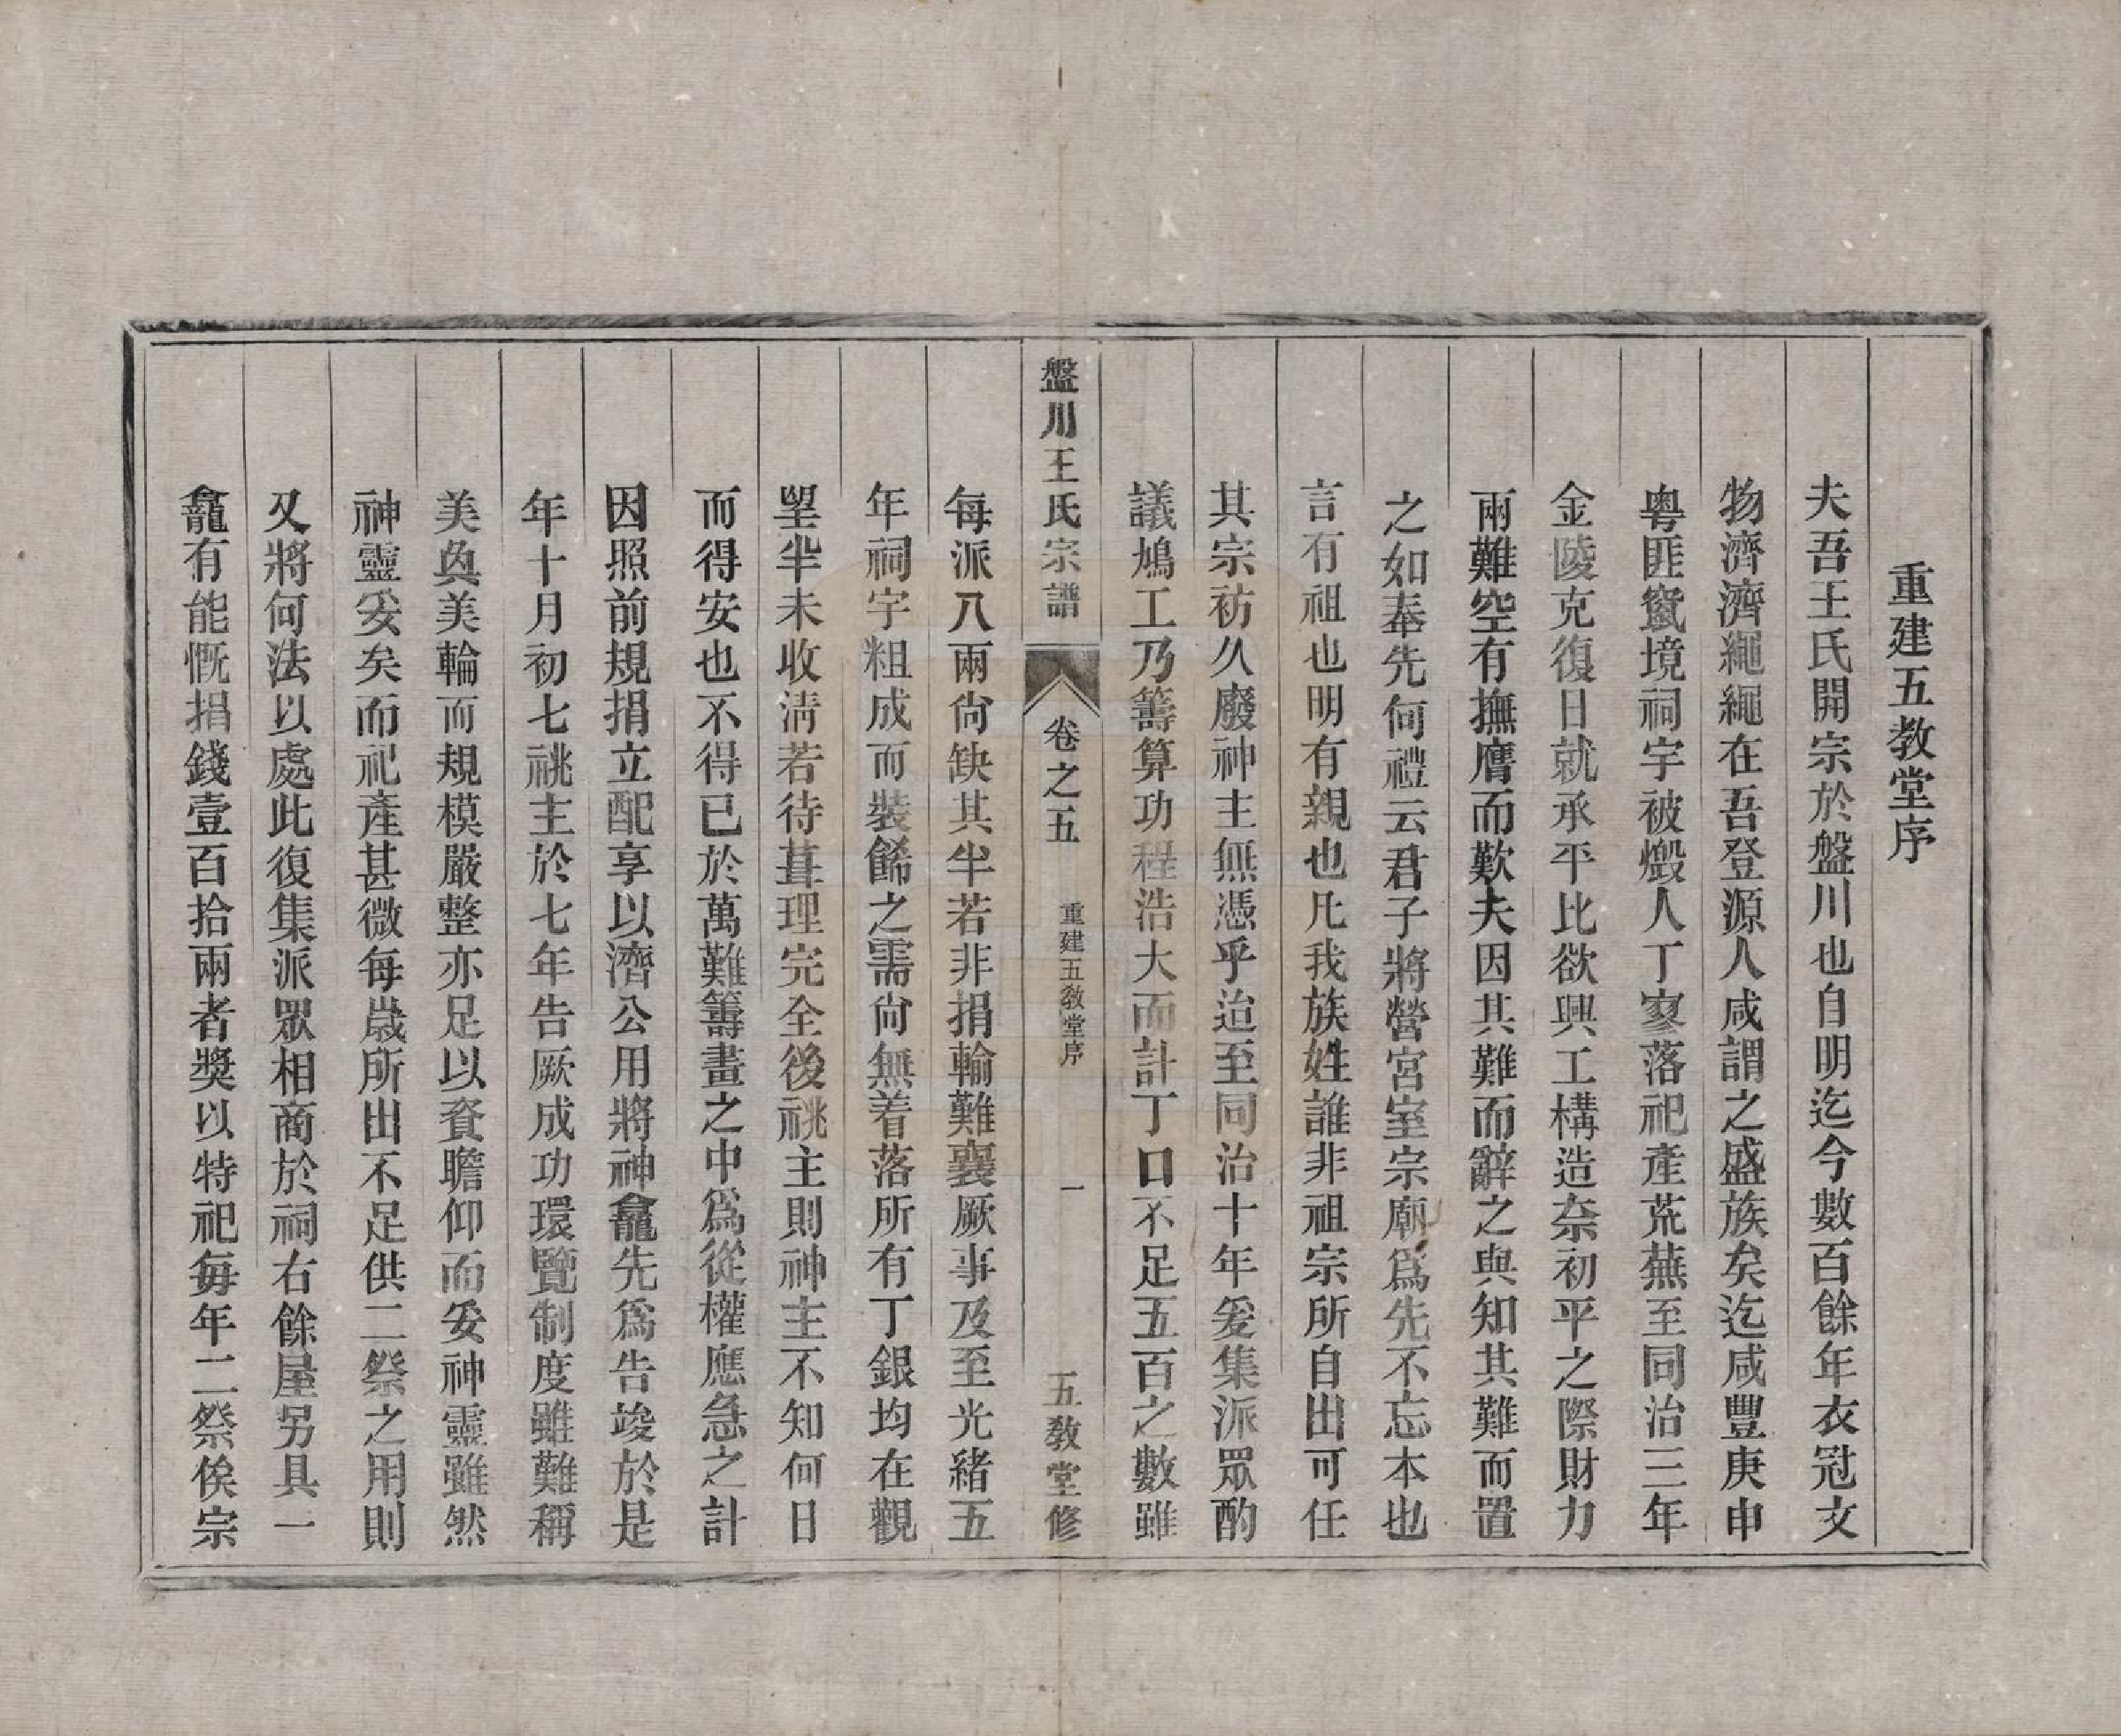 重建五教堂序
夫吾王氏開宗於盤川也自明迄今數百餘年衣冠文
物濟濟繩繩在吾登源人咸謂之盛族矣迄咸豐庚申
粵匪竄境祠宇被燬人丁寥落祀產荒蕪至同治三年
金陵克復日就承平比欲興工構造奈初平之際財力
兩難空有撫膺而歎夫因其難而辭之與知其難而置
之如奉先何禮云君子將營宮室宗廟為先不忘本也
言有祖也明有親也凡我族姓誰非祖宗所自出可任
其宗祊久廢神主無憑乎迨至同治十年爰集派眾酌
議鳩工乃籌算功程浩大而計丁口不足五百之數雖
盤川王氏宗譜 卷之五 重建五教堂序 一 五教堂修
每派八兩尚缺其半若非捐輸難襄厥事及至光緒五
年祠宇粗成而裝餙之需尚無着落所有丁銀均在觀
望半未收清若待葺理完全後祧主則神主不知何日
而得安也不得已於萬難籌畫之中為從權應急之計
因照前規捐立配享以濟公用將神龕先為告竣於是
年十月初七祧主於七年告厥成功環覽制度雖難稱
美奐美輪而規模嚴整亦足以資瞻仰而妥神靈雖然
神靈妥矣而祀產甚微每歲所出不足供二祭之用則
又將何法以處此復集派眾相商於祠右餘屋另具一
龕有能慨捐錢壹百拾兩者獎以特祀每年二祭俟宗